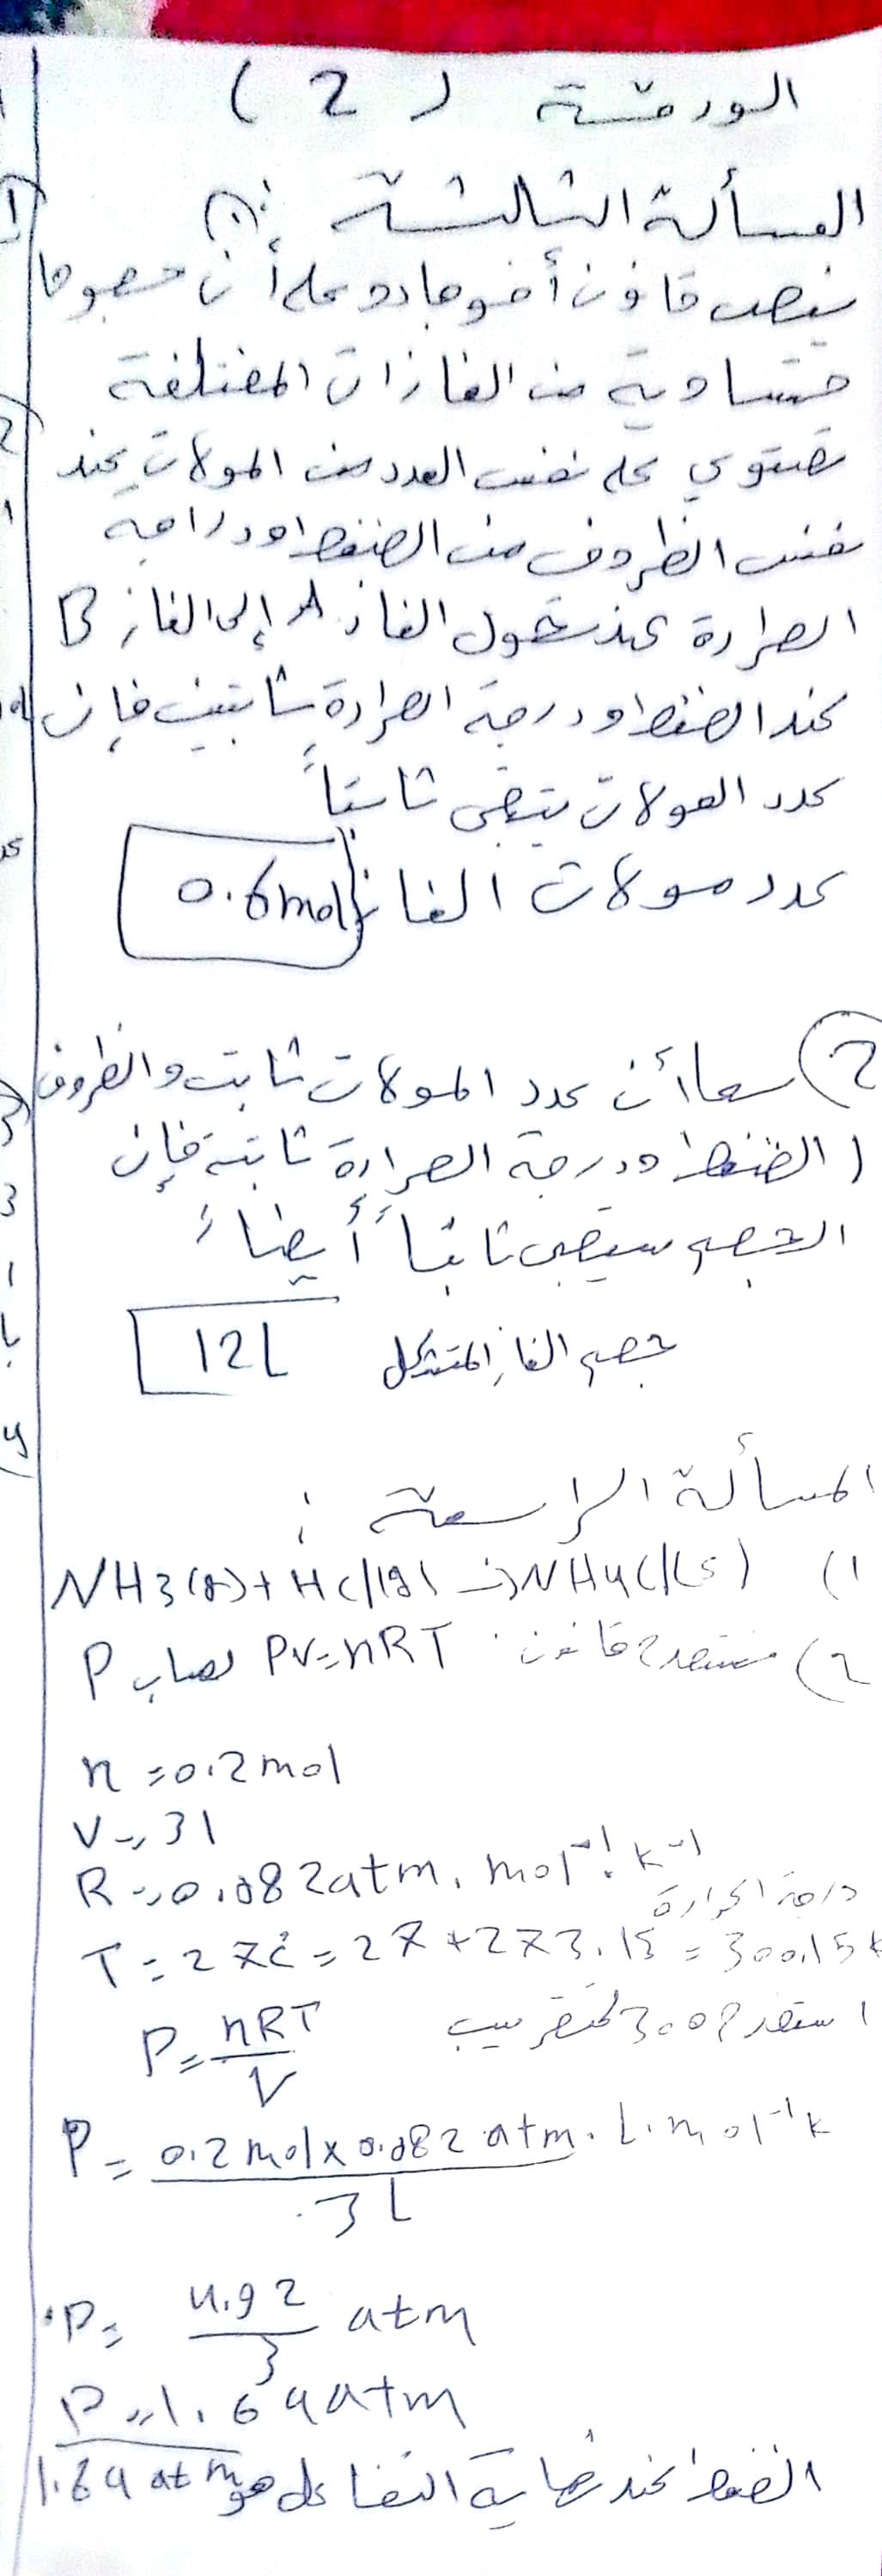 الورقة (2)
المسألة الثالثة :
ينص قانون أفوجادرو على أن حجوما
متساوية من الغازات المختلفة
تحتوي على نفس العدد من المولات عند
نفس الظروف من الضغط ودراجة
الحرارة عند تحول الغاز A إلى الغاز B
عند الضغط ودرجة الحرارة ثابتين فإن
عدد المولات يبقى ثابتاً
عدد مولات الغاز 0.6mol
2) بما أن عدد المولات ثابت والظروف
( الضغط ودرجة الحرارة ثابتة فإن
الحجم سيبقى ثابتاً أيضاً
حجم الغاز المتشكل 12L
المسألة الرابعة :
1) NH3(g)+HCl(g)→NH4Cl(s)
2) نستخدم قانون PV=nRT لحساب P
n=0.2mol
V=3l
R=0.082atm.mol-1.k-1
درجة الحرارة
T=27c°=27+273.15=300.15k
استخدم 300 لتقريب
P=nRT/V
P=0.2mol×0.082atm.L.mol-1k / 3L
P=4.92/3 atm
P=1.64atm
الضغط عند نهاية التفاعل هو 1.64atm